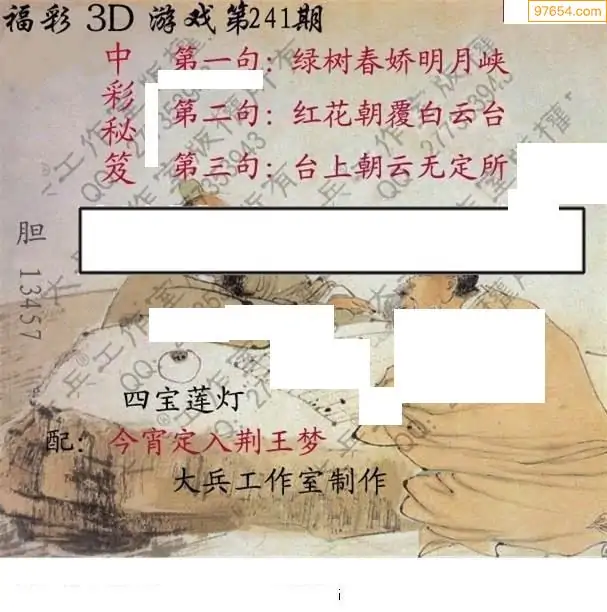 97654.com
福彩 3D 游戏第241期
中彩秘笈
第一句: 绿树春娇明月峡
第二句: 红花朝覆白云台
第三句: 台上朝云无定所
胆 13457
四宝莲灯
配: 今宵定入荆王梦
大兵工作室制作
i